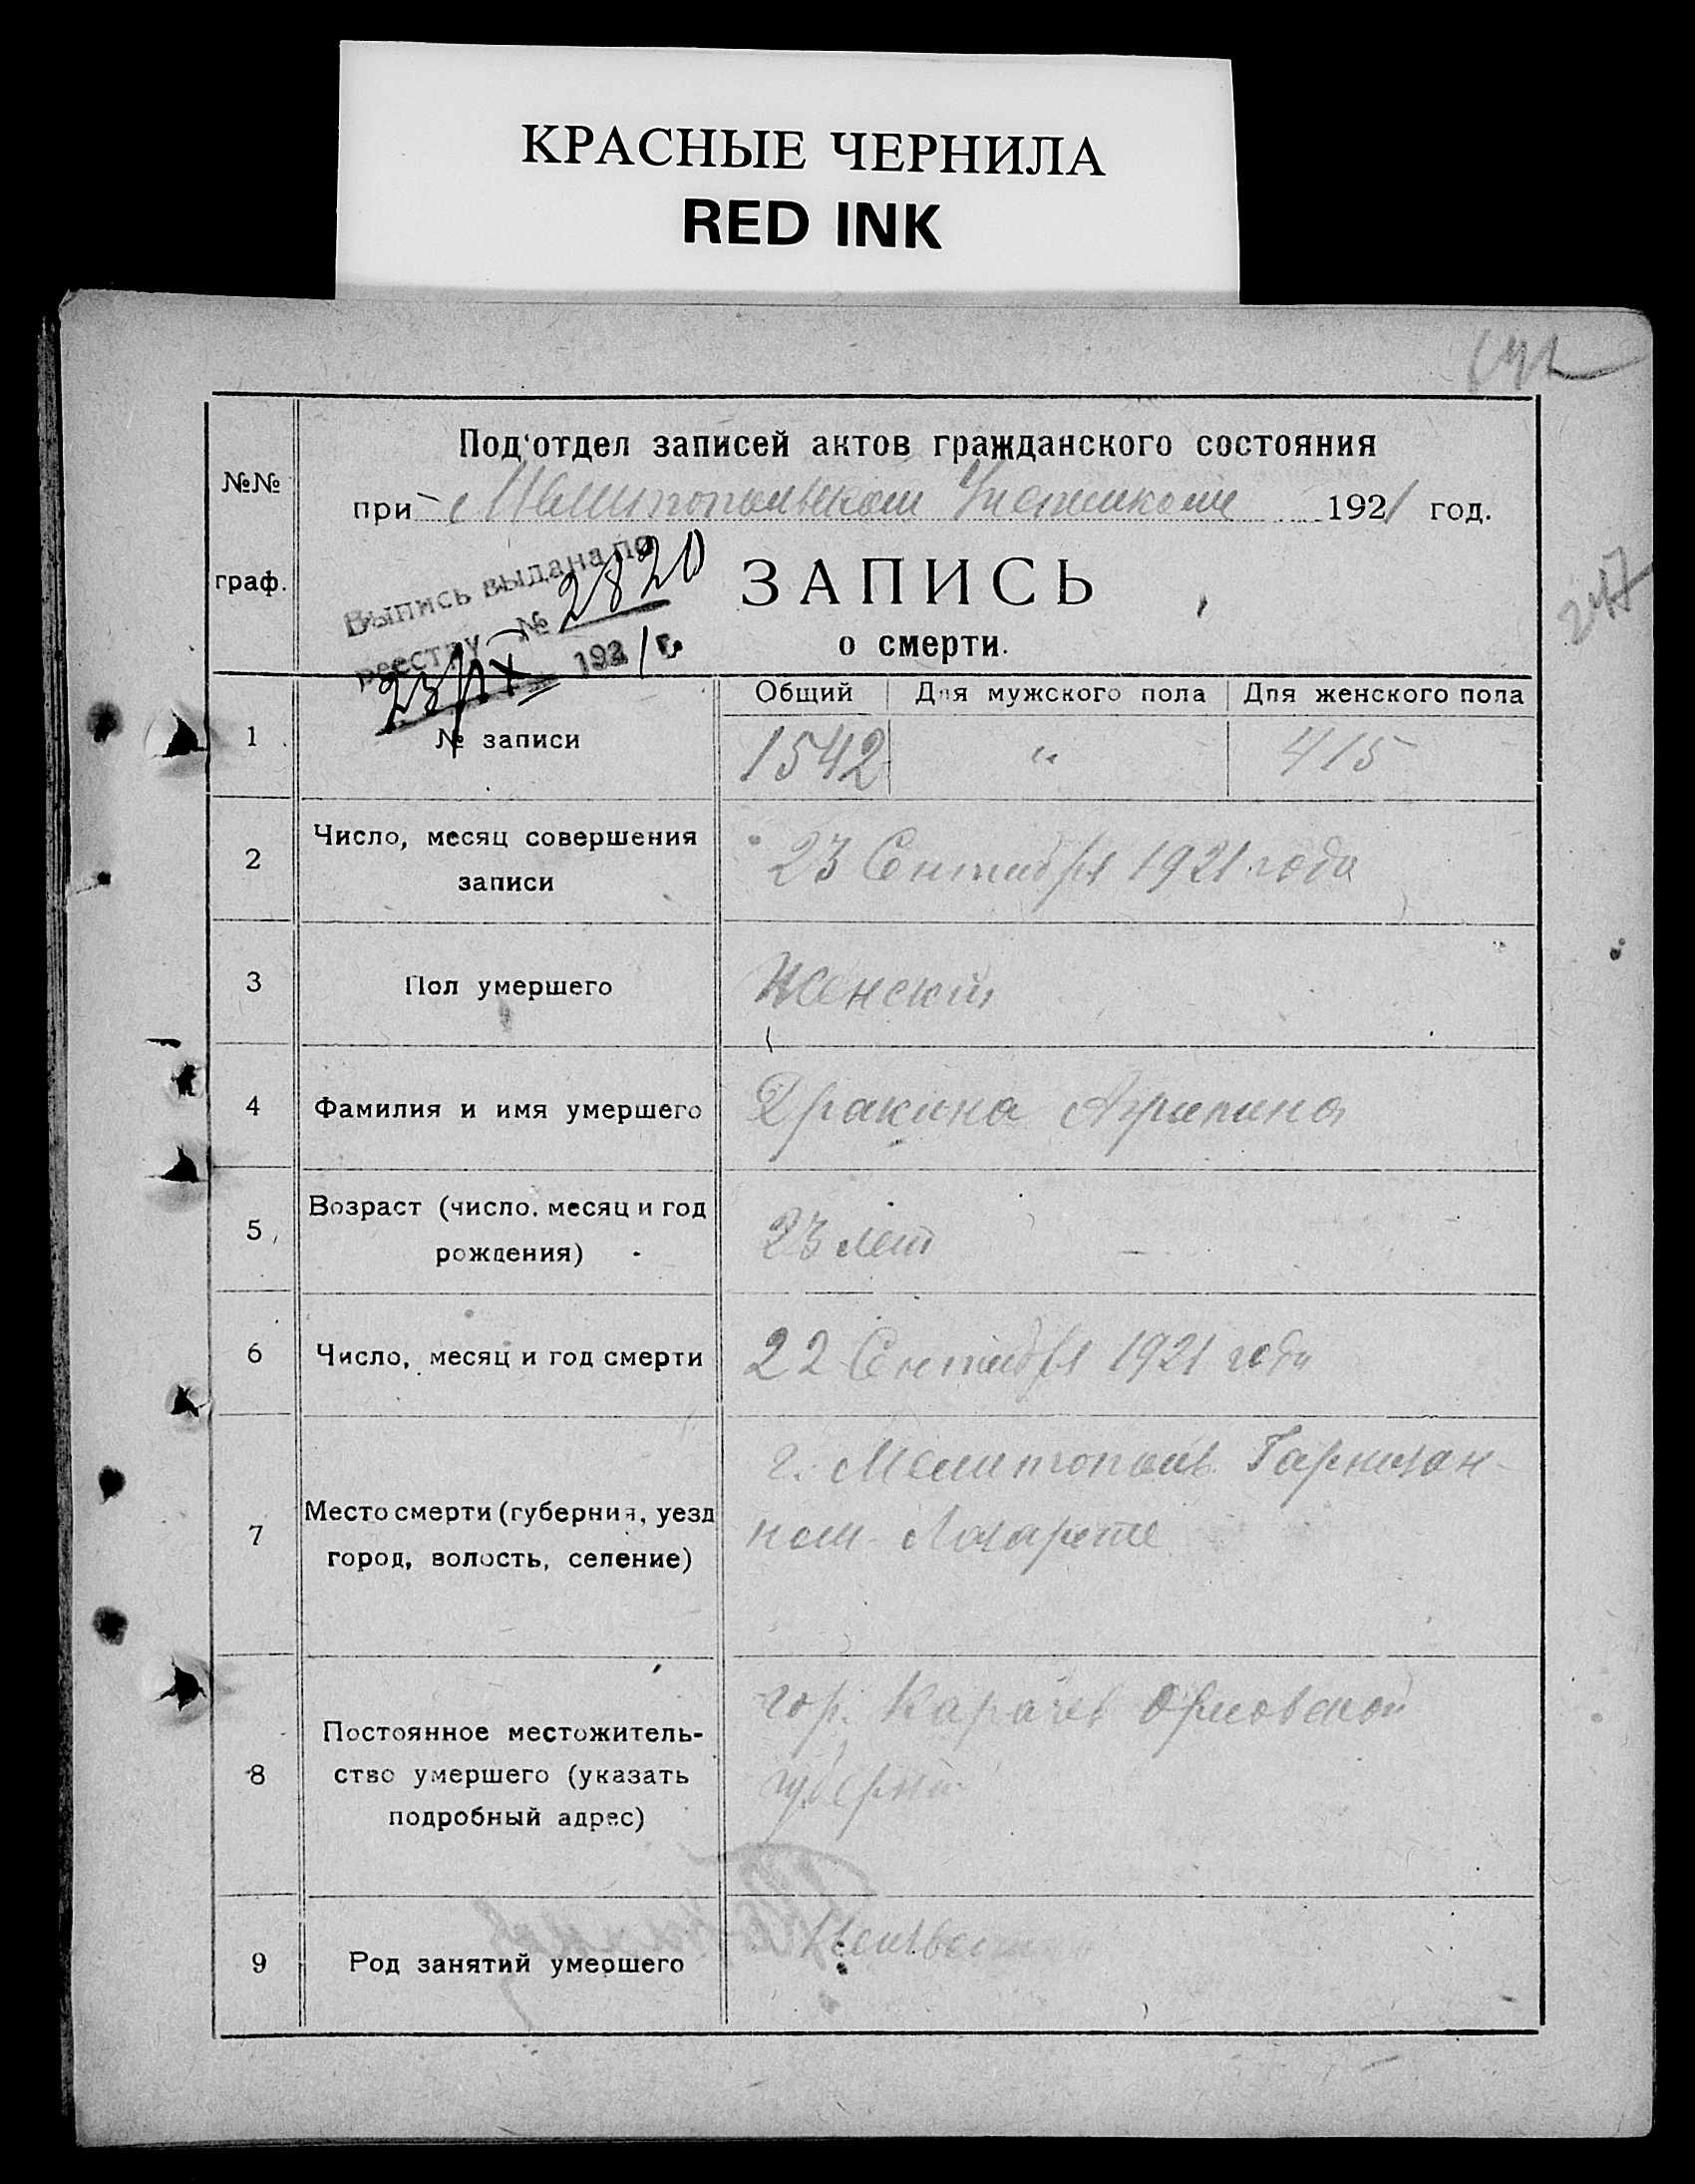 КРАСНЫЕ ЧЕРНИЛА
RED INK
№№
граф.
Подотдел записей актов гражданского состояния
при Мелитопольском 1921 год.
Выпись выдана по
реестру № 2820
1921 г.
ЗАПИСЬ
о смерти.
Общий Для мужского пола Для женского пола
1 № записи 1542 " 415
2 Число, месяц совершения
записи
23 Сентября 1921 года
3 Пол умершего Женский
4 Фамилия и имя умершего Дракина Агрипина
5 Возраст (число, месяц и год
рождения)
23 лет
6 Число, месяц и год смерти 22 Сентября 1921 года
7 Место смерти (губерния, уезд
город, волость, селение)
г. Мелитополь Гарнизон-
ном Лазарете
8 Постоянное местожитель-
ство умершего (указать
подробный адрес)
гор. Карачев Орловской
губернии
9 Род занятий умершего
247